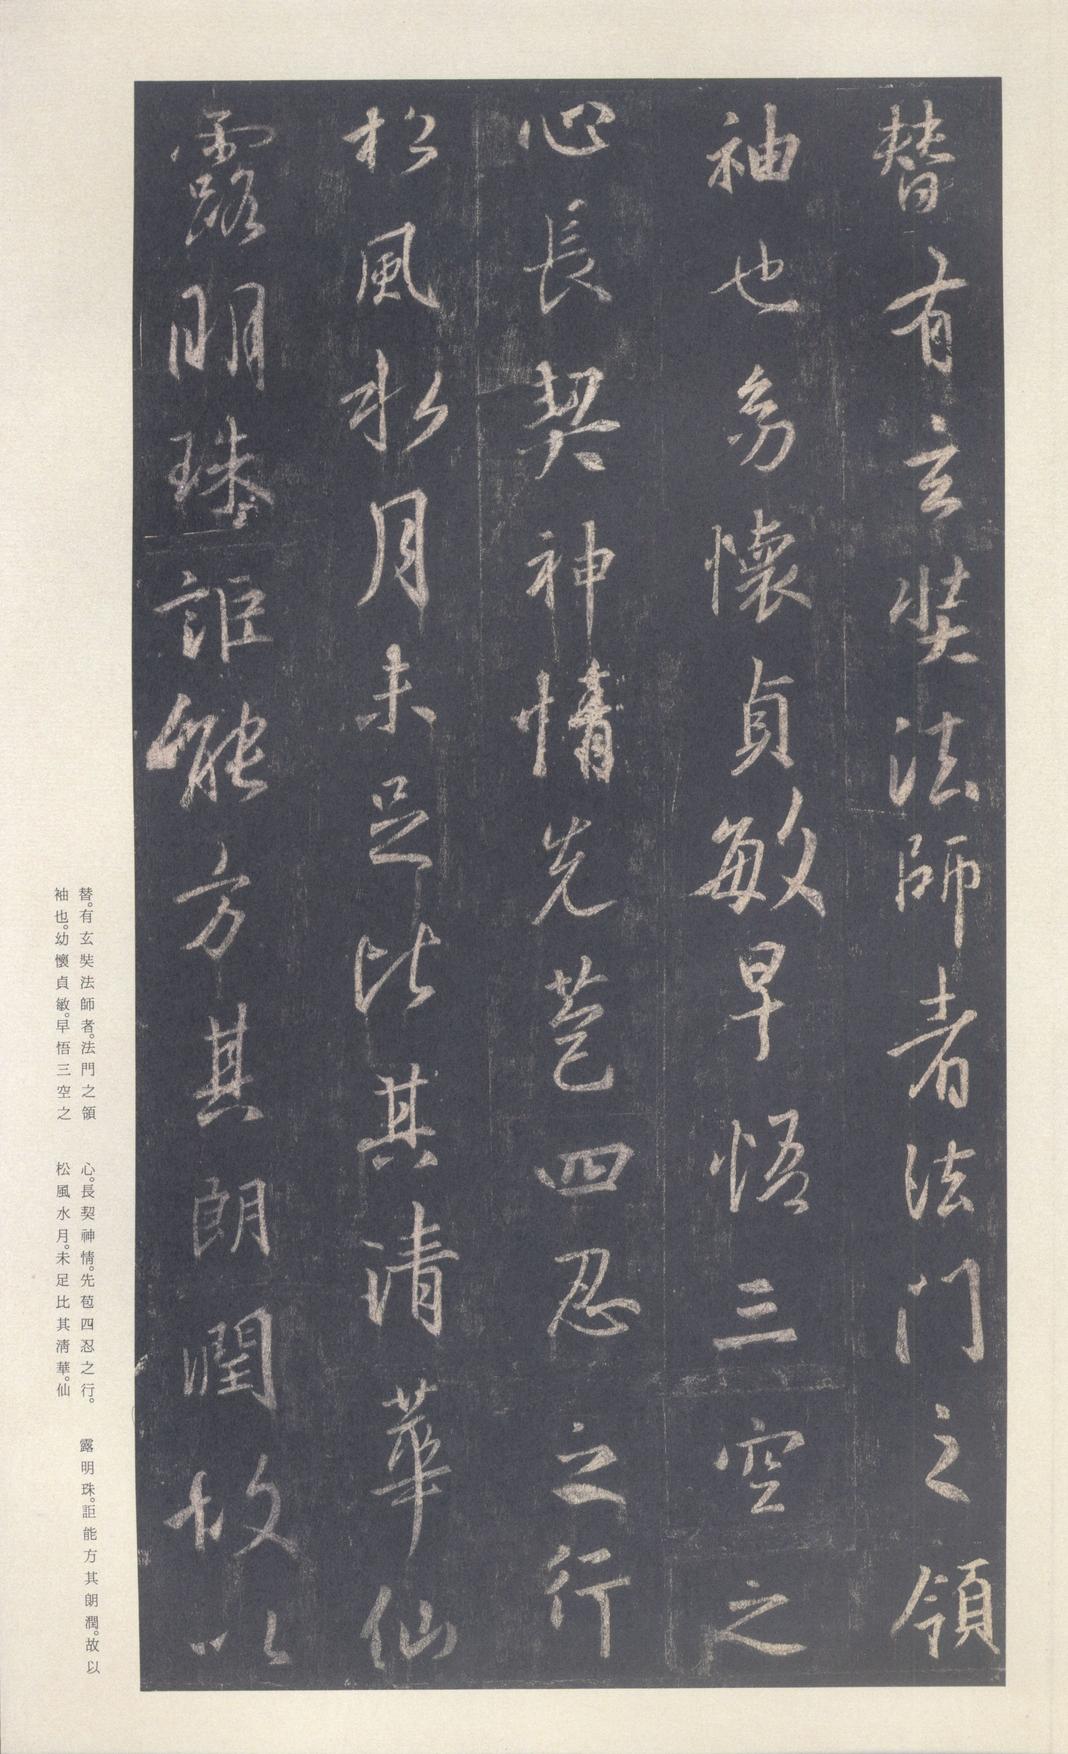 替有玄奘法師者法門之領
袖也幼懷貞敏早悟三空之
心長契神情先苞四忍之行
松風水月未足比其清華仙
露明珠詎能方其朗潤故以
替。有玄奘法師者。法門之領
袖也。幼懷貞敏。早悟三空之
心。長契神情。先苞四忍之行。
松風水月。未足比其清華。仙
露明珠。詎能方其朗潤。故以